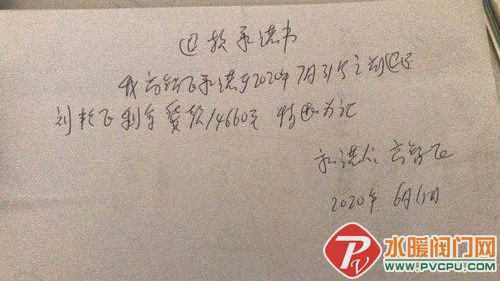 退款承诺书
我 承诺于2020年7月31号之前退还
刘 飞剩余货款14660元 特此为记
承诺人
2020年 6月1日
水暖阀门网
WWW.PVCPU.COM